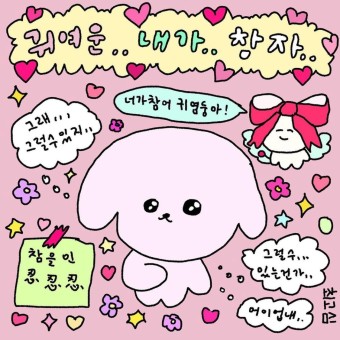 귀여운.. 내가.. 참자..
너가참어 귀염둥아!
그래....
그럴수있지..
참을 인
忍. 忍. 忍.
그럴수...
있는건가..
어이없네..
최고심